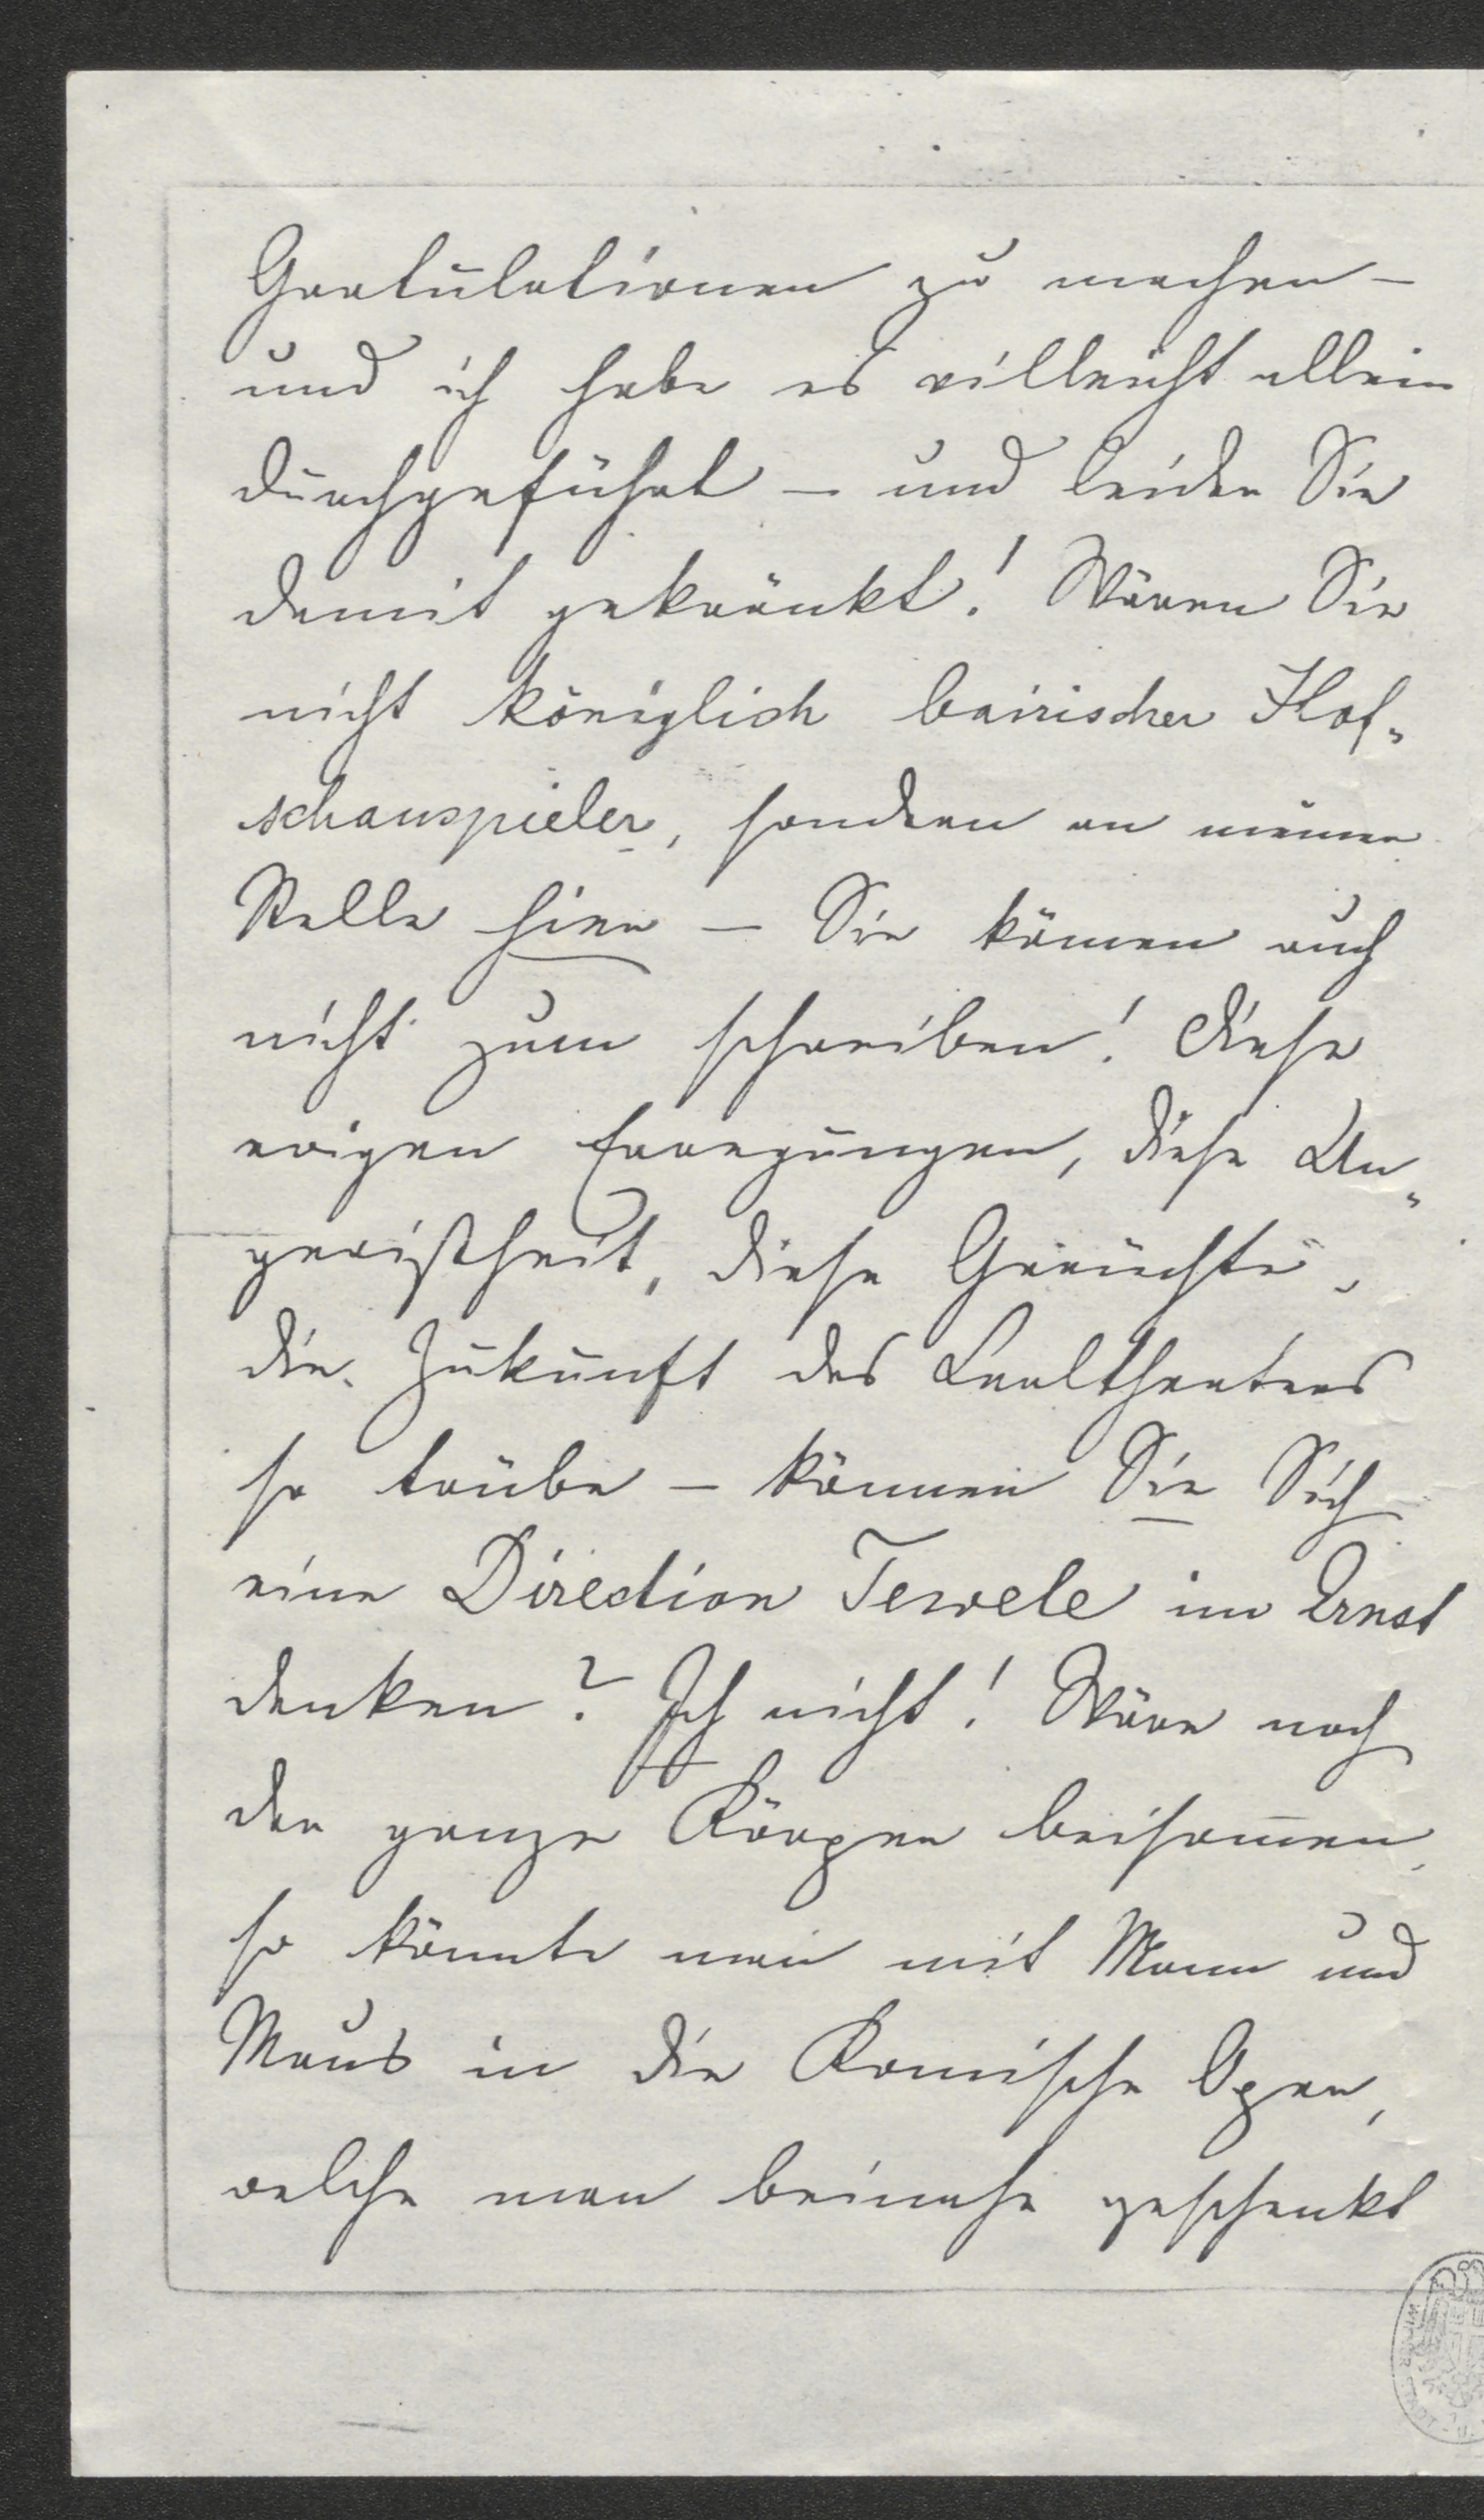 Gratulationen zu machen –
und ich habe es villeicht allein
durchgeführt – und leider Sie
damit gekränkt! Wären Sie
nicht königlich bairischer Hof„
schauspieler, sondern an meiner
Stelle hier – Sie kämen auch
nicht zum schreiben! Diese
ewigen Erregungen, diese Un„
gewißheit, diese Gerüchte,
die Zukunft des Carltheaters
so trübe – können Sie Sich
eine Direction Tewele im Ernst
denken? Ich nicht! Wäre noch
der ganze Körper beisam̅en,
so könnte man mit Mann und
Maus in die Komische Oper,
welche man beinahe geschenkt